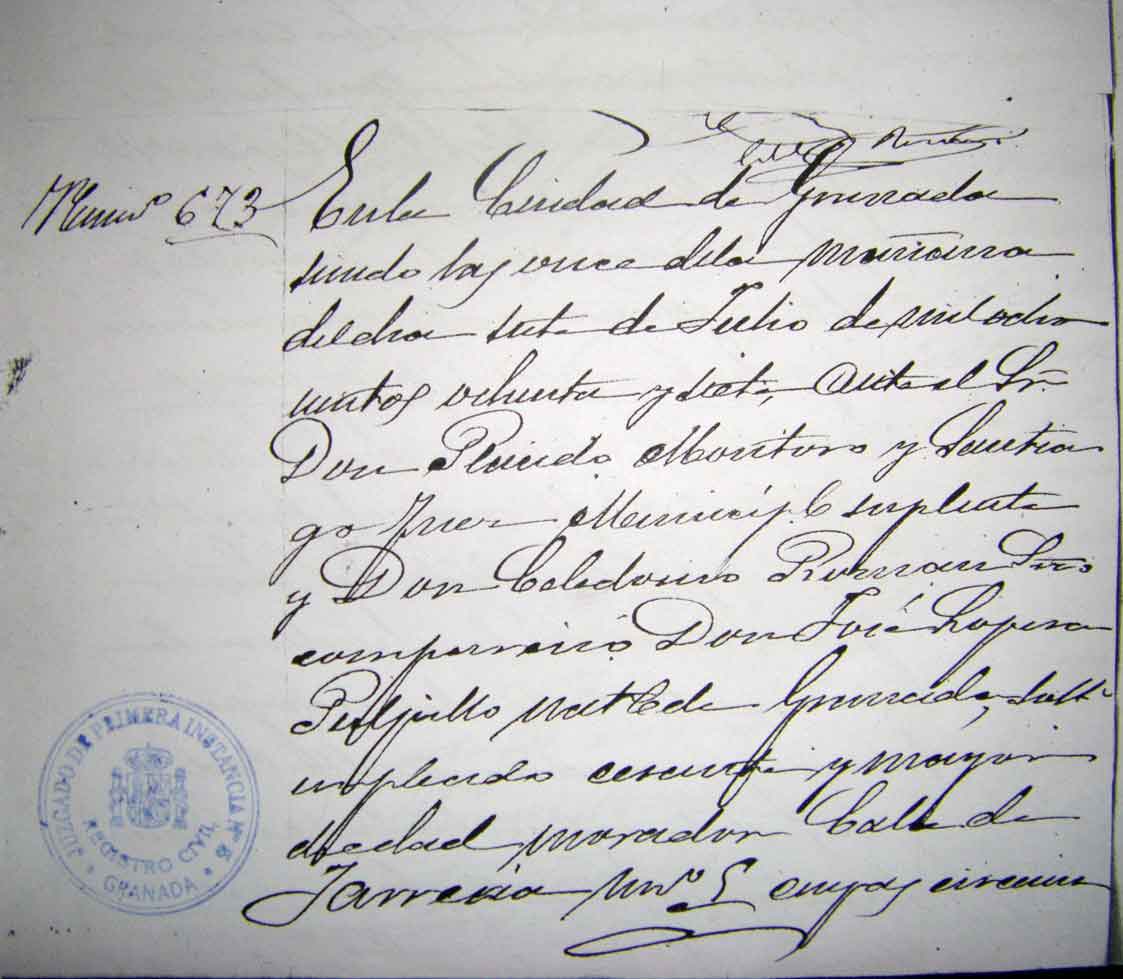 Numº 673
En la Ciudad de Granada
siendo las once dela mañana
del dia siete de Julio de mil ocho
cientos ochenta y siete, ante el Sr.
Don Placido Montoro y Santia
go Juez Municipl suplente
y Don Celedonio Roman Srio
compareció Don José Lopera
natl de Granada, solt.
empleado cesante y mayor
de edad morador Calle de
Jarreria nº 5 cuyas circuns
JUZGADO DE PRIMERA INSTANCIA Nº 8
REGISTRO CIVIL
GRANADA